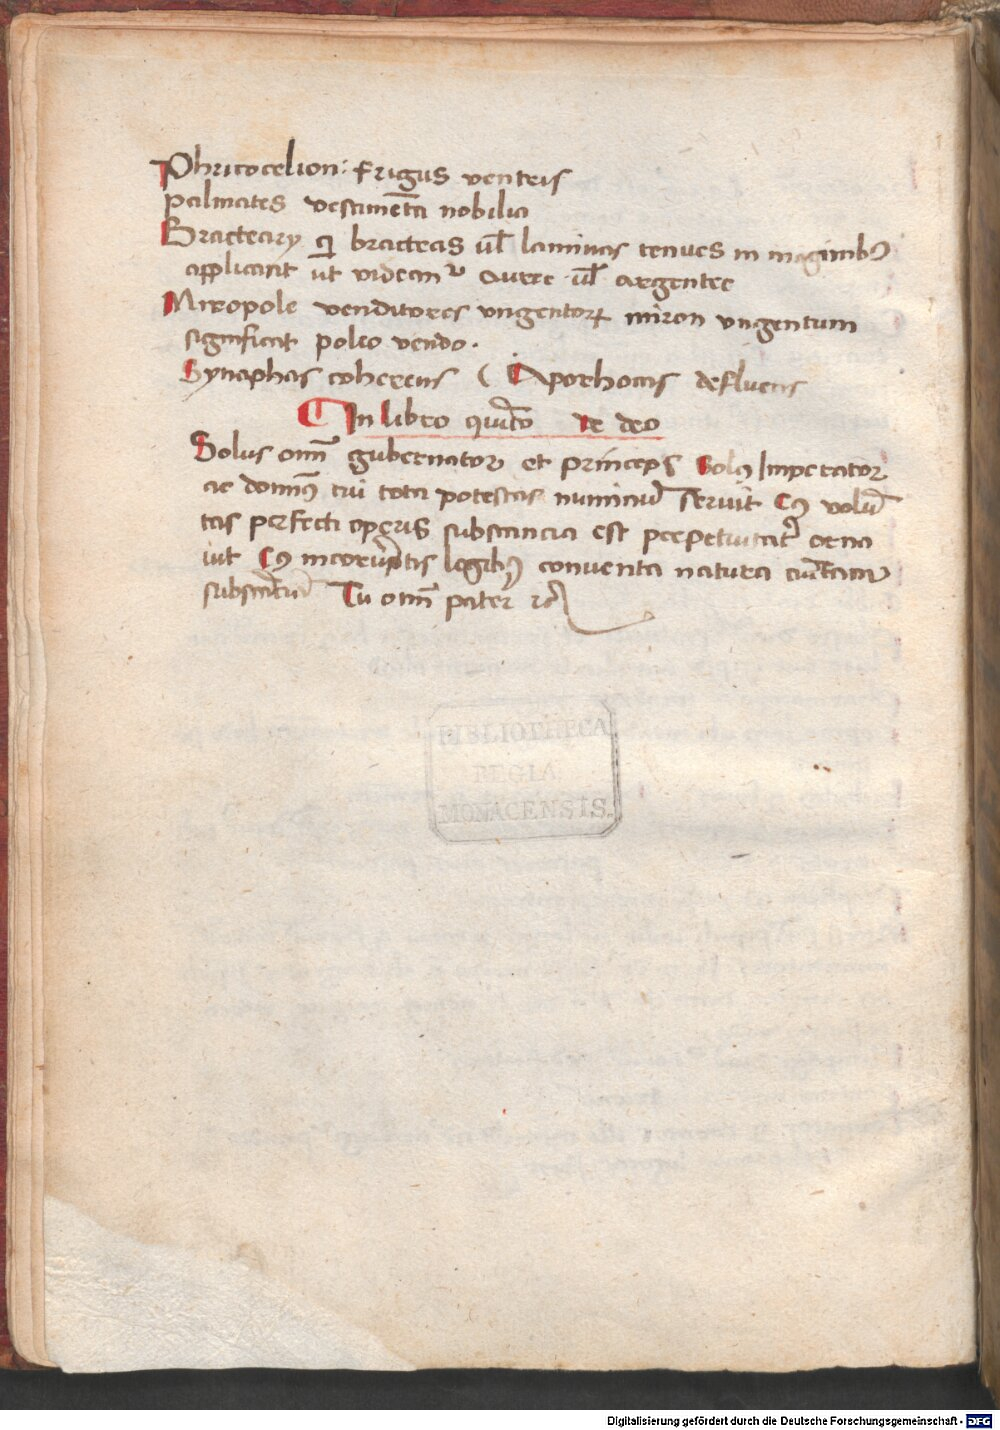 Phricocelion: Frigus ventris
palmates vestime̅ta nobilia
Bracteary q̅ı bracteas ul̅ laminas tenues in maginibꝰ
applicant ut videanᷣ auree ul̅ argentee
Miropole venditores vngentorꝝ miron vngentum
significat poleo vendo.
Synaphas coherens ( Aporhoias defluens
In libro qui̅to De deo
Solus omi̅ gubernator et princeps Solꝰ Imperator
ac domi̅ꝰ cui tota potestas numinu̅ seruit Cꝰ volu̅
tas perfecti operis substancia est
iut Cꝰ incoruptis legibꝫ conuenta natura
Tu omi̅ pater ⁊c̅
BIBLIOTHECA
REGIA
MONACENSIS.
Digitalisierung gefördert durch die Deutsche Forschungsgemeinschaft - DFG